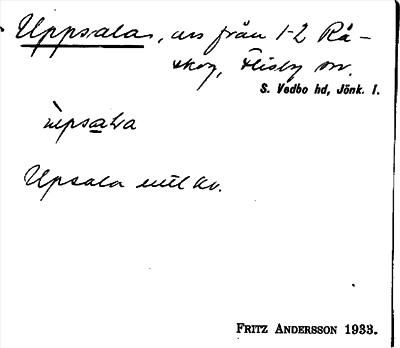 Uppsala, avs från 1-2 Rå-
skog, Flisby sn.
S. Vedbo hd, Jönk. l.
ùpsala
Upsala enl kv.
FRITZ ANDERSSON 1933.